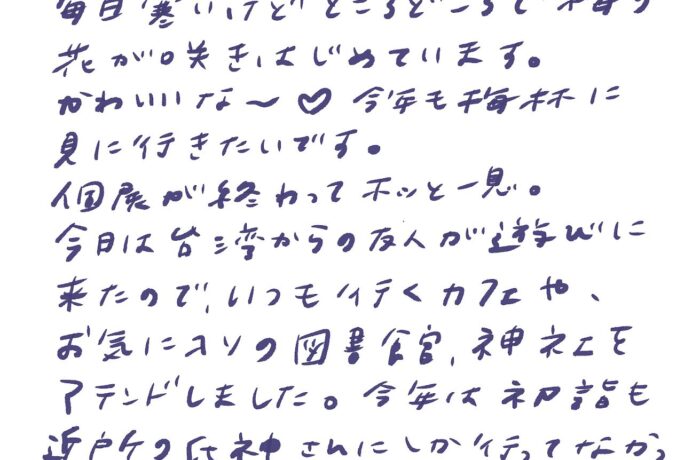 毎日寒いけどところどころで梅の
花が咲きはじめています。
かわいいな〜♡ 今年も梅林に
見に行きたいです。
個展が終わってホッと一息。
今日は台湾からの友人が遊びに
来たので、いつも行くカフェや、
お気に入りの図書館、神社を
アテンドしました。今年は初詣も
近所の氏神さんにしか行ってなかっ